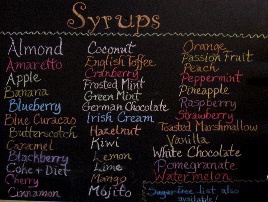 Syrups
Almond
Amaretto
Apple
Banana
Blueberry
Blue Curacao
Butterscotch
Caramel
Blackberry
Coke + Diet
Cherry
Cinnamon
Coconut
English Toffee
Cranberry
Frosted Mint
Green Mint
German Chocolate
Irish Cream
Hazelnut
Kiwi
Lemon
Lime
Mango
Mojito
Orange
Passion Fruit
Peach
Peppermint
Pineapple
Raspberry
Strawberry
Toasted Marshmallow
Vanilla
White Chocolate
Pomegranate
Watermelon
Sugar free list also
available!